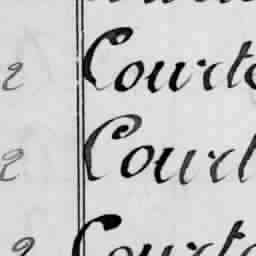 2 Courte
2 Court
2 Courte